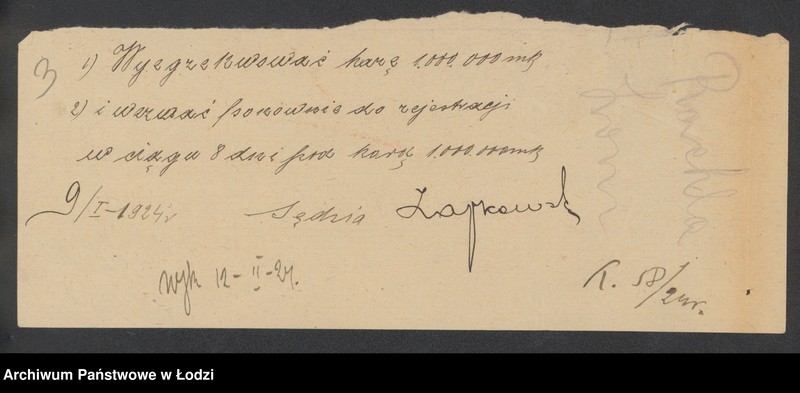 3
1) Wyegzekwować karę 1.000.000 mk
2) i wezwać ponownie do rejestracji
w ciągu 8 dni pod karą 1.000.000 mk
9/I-1924 r
Sędzia
wyk 12-II-24.
58/24 r.
Archiwum Państwowe w Łodzi